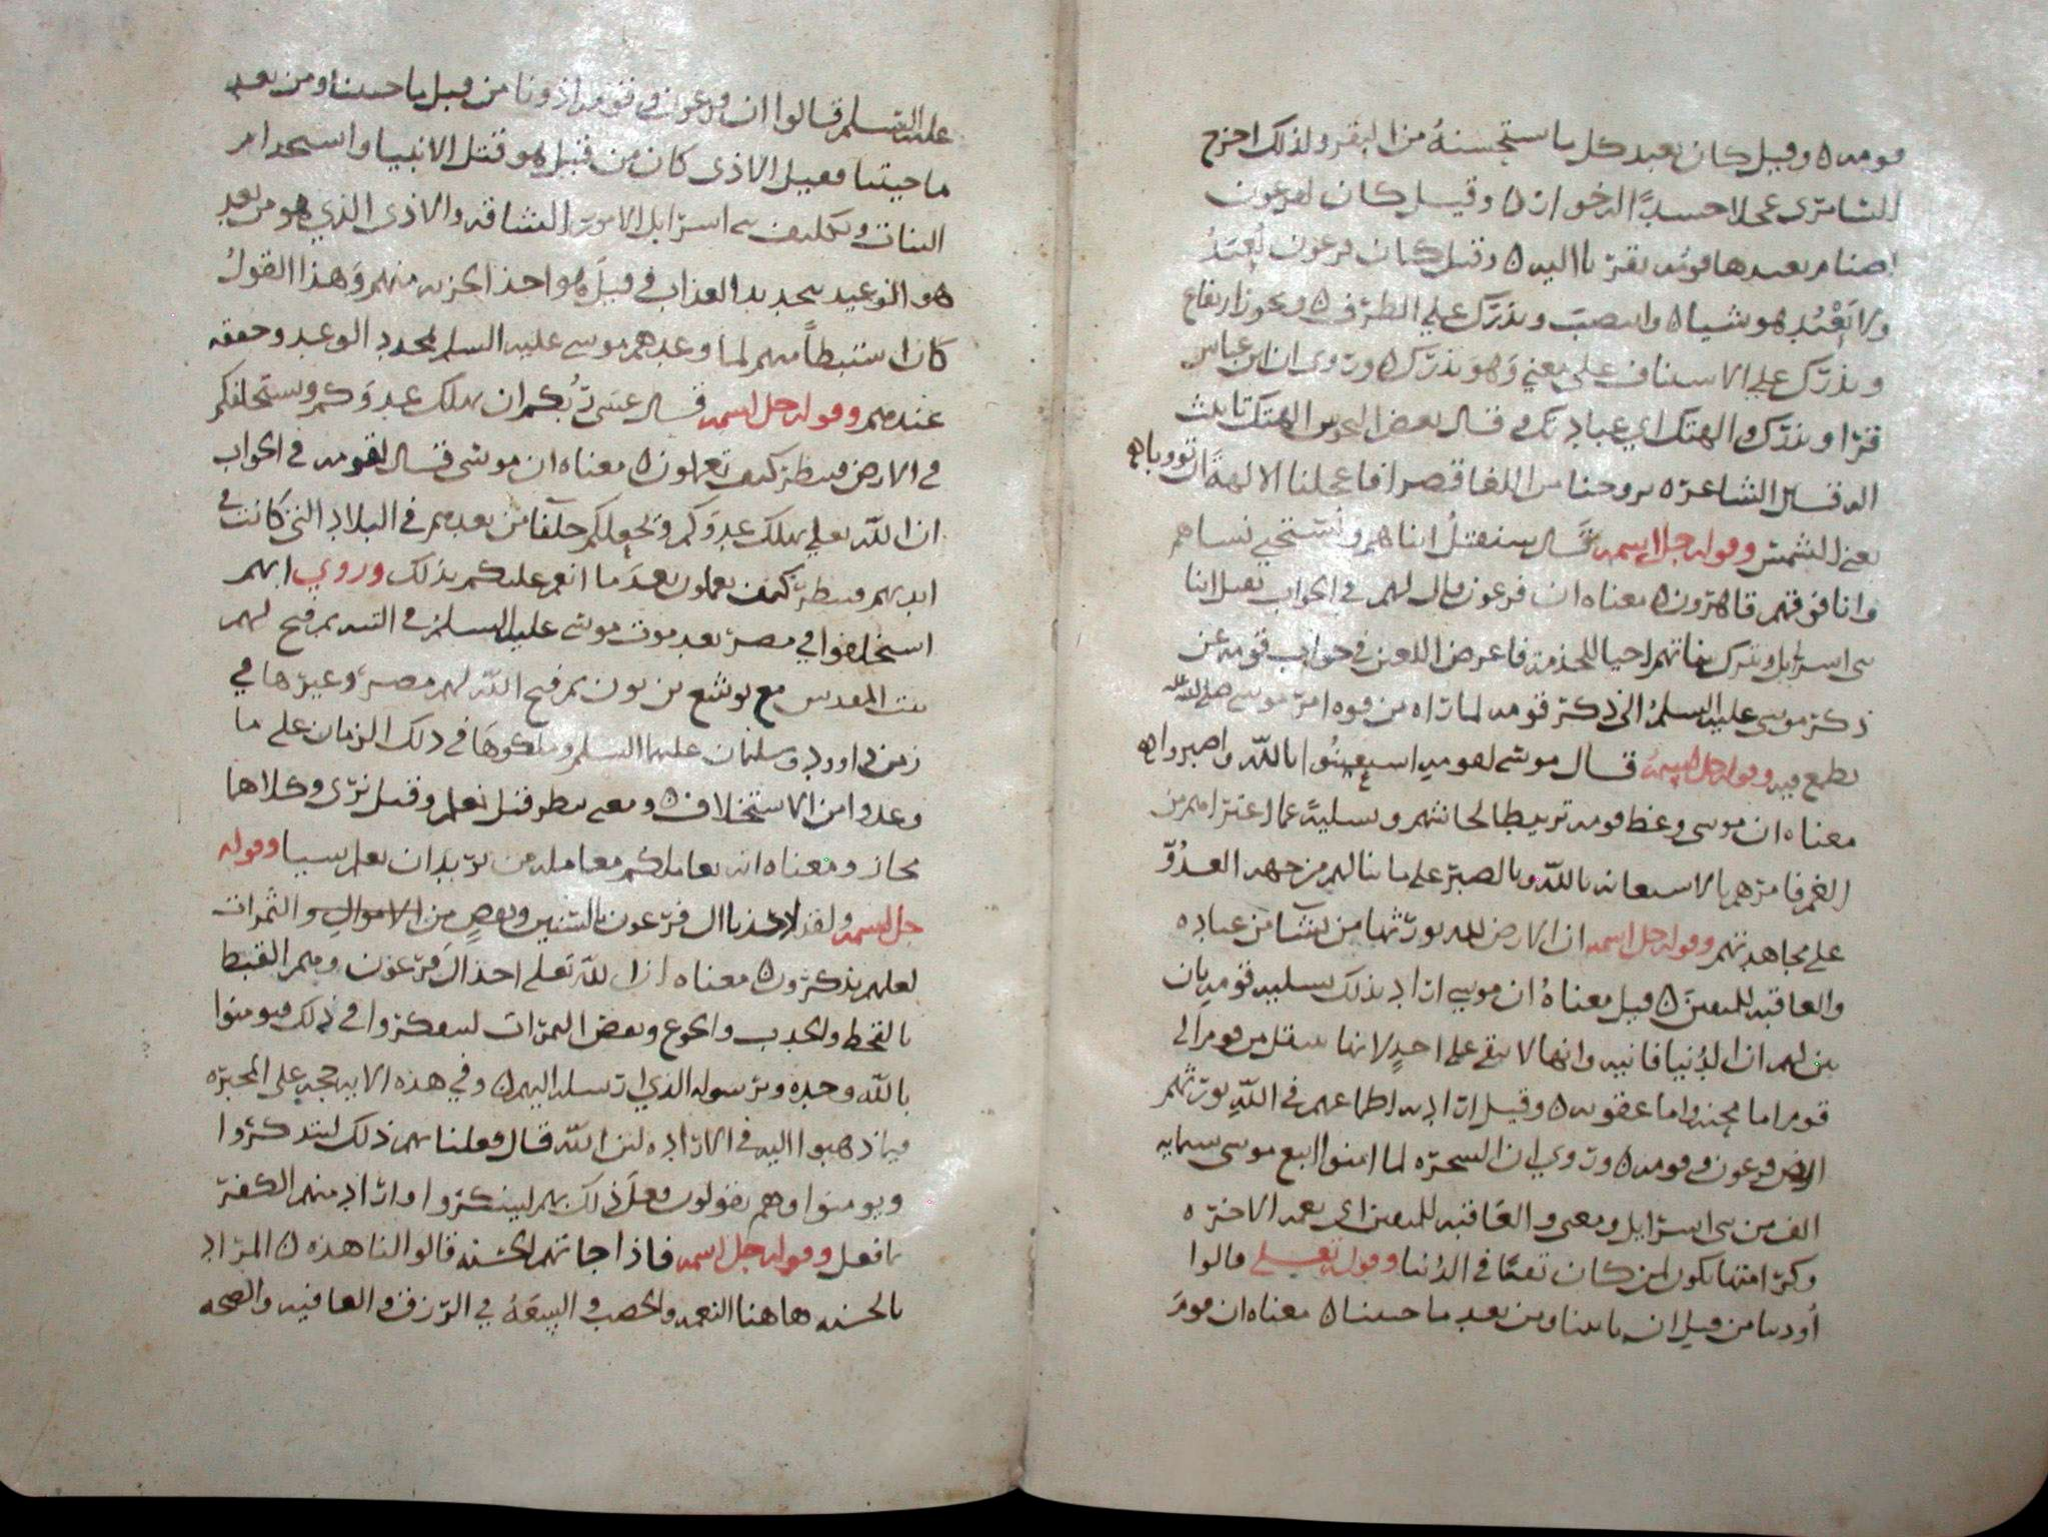 قومه ٥ وقيل كان يعبد كل ما استحسنه من البقر ولذلك اخرج
السامري عجلا جسدا له خوار ٥ وقيل كان لفرعون
اصنام يعبدها قومه تقربا اليه ٥ وقيل كان فرعون يُعبَدُ
ولا يَعْبُد هو شيا ٥ وانتصب ويذرك على الظرف ٥ ويجوز ارتفاع
ويذرك على الاستناف على معنى وهو يذرك ٥ وروي ان ابن عباس
قرا ويذرك والهتك اي عبادتك وقال بعض الهتك تانيث
اله قال الشاعره تروحنا من اللعبا قصرا فاعجلنا الالهة ان تووبا ٥
يعني الشمس وقوله جل اسمه قال سنقتل ابناهم ونستحيي نساهم
وانا فوقهم قاهرون ٥ معناه ان فرعون قال لهم في الجواب نقتل ابنا
بني اسرايل ونترك بناتهم احيا للخدمة فاعرض اللعين في جواب قومه عن
ذكر موسى عليه السلم الى ذكر قومه لما راه من قوه امر موسى صلى الله عليه
يطمع فيه وقوله جل اسمه قال موسى لقومه استعينوا بالله واصبروا ٥
معناه ان موسى وعظ قومه تربيطا لجاشهم وتسلية عما اعتراهم من
الغم فامرهم بالاستعانه بالله وبالصبر على ما ينالهم من جهه العدوّ
على مجاهدتهم وقوله جل اسمه ان الارض لله يورثها من يشا من عباده
والعاقبه للمتقين ٥ قيل معناه ان موسى اراد بذلك تسليه قومه بان
بين لهم ان الدنيا فانيه وانها لا تبقى على احد لانها تنتقل من قوم الى
قوم اما محنه واما عقوبه ٥ وقيل اراد به اطماعهم في الله يورثهم
ارض فرعون وقومه ٥ وروي ان السحره لما امنوا اتبع موسى ستمايه
الف من بني اسرايل ومعنى والعاقبه للمتقين اي نعمه الاخره
وكرامتها تكون لمن كان تقيا في الدنيا وقوله تعلى قالوا
اُوذينا من قبل ان تاتينا ومن بعد ما جيتنا ٥ معناه ان قوم
عليه السلم قالوا ان فرعون وقومه اذونا من قبل ما جيتنا ومن بعد
ما جيتنا فقيل الاذى كان من قبل هو قتل الانبيا واستخدام
البنات وتكليف بني اسرايل الامور الشاقه والاذى الذي هو من بعد
هو الوعيد بتجديد العذاب في قيل هو اخذ الجزيه منهم وهذا القول
كان استبطاً منهم لما وعدهم موسى عليه السلم فجدد الوعد وحققه
عندهم وقوله جل اسمه قال عسى ربُكم ان يهلك عدوكم ويستخلفكم
في الارض فينظر كيف تعملون ٥ معناه ان موسى قال لقومه في الجواب
ان الله تعلى يهلك عدوكم ويجعلكم خلفا من بعدهم في البلاد التي كانت في
ايديهم فينظر كيف تعملون بعد ما انعم عليكم بذلك وروي انهم
استخلفوا في مصر بعد موت موسى عليه السلم في التيه ثم فتح لهم
بيت المقدس مع يوشع بن نون ثم فتح الله لهم مصر وغيرها في
زمن داوود وسليمان عليهما السلم وملكوها في ذلك الزمان على ما
وعدوا من الاستخلاف ٥ ومعنى ينظر قيل نعلم وقيل نرى وكلاهما
مجاز ومعناه انه يعاملكم معامله من يريد ان يعلم سببا وقوله
جل اسمه ولقد اخذنا ال فرعون بالسنين ونقصٍ من الاموال والثمرات
لعلهم يذكرون ٥ معناه ان الله تعلى اخذ ال فرعون وهم القبط
بالقحط والجدب والجوع ونقص الثمرات ليتفكروا في ذلك فيومنوا
بالله وحده وبرسوله الذي ارسله اليهم ٥ وفي هذه الايه حجه على المجبره
فيما ذهبوا اليه في الاراده لان الله قال فعلنا بهم ذلك ليتذكروا
ويومنوا وهم يقولون فعل ذلك بهم لينكروا واراد منهم الكفر
بما فعل وقوله جل اسمه فاذا جاتهم الحسنه قالوا لنا هذه ٥ المراد
بالحسنه هاهنا النعمه والخصب والسعَهُ في الرزق والعافيه والصحه